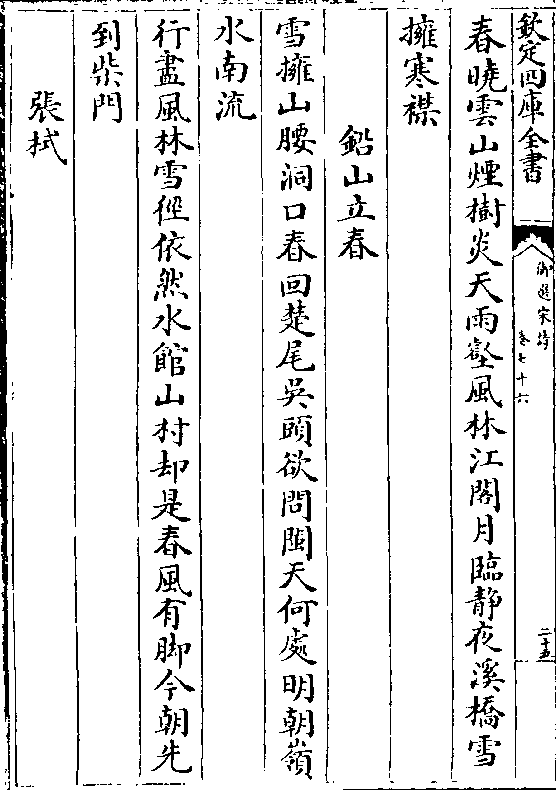 欽定四庫全書
御選宋詩
卷七十六
二十五
春曉雲山煙樹炎天雨壑風林江閣月臨靜夜溪橋雪
擁寒襟
鉛山立春
雪擁山腰洞口春回楚尾吳頭欲問閩天何處明朝嶺
水南流
行盡風林雪徑依然水館山村却是春風有脚今朝先
到柴門
張栻